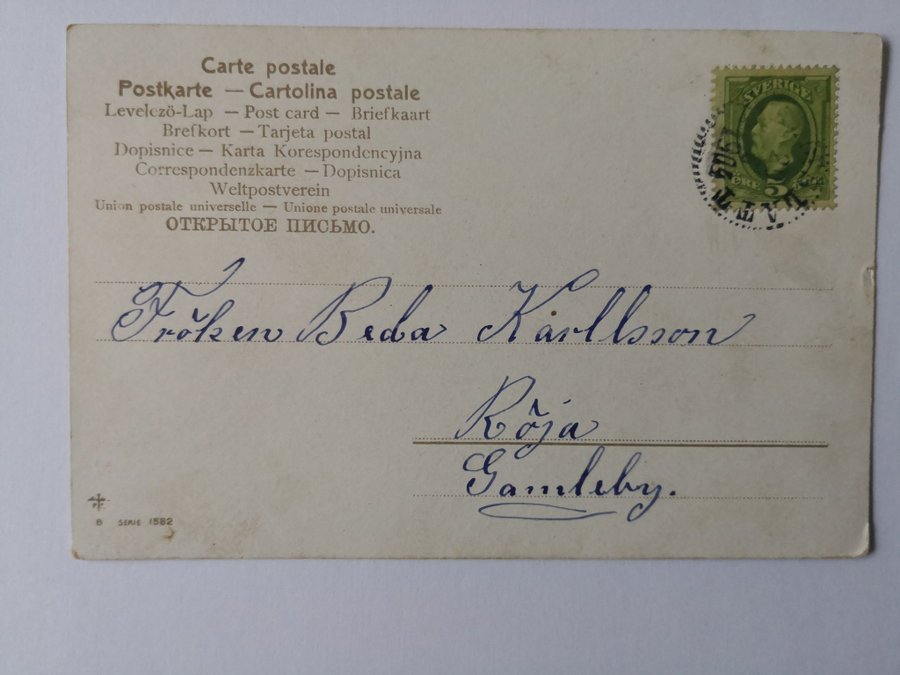 Carte postale
Postkarte — Cartolina postale
Levelező-Lap — Post card — Briefkaart
Brefkort — Tarjeta postal
Dopisnice — Karta Korespondencyjna
Correspondenzkarte — Dopisnica
Weltpostverein
Union postale universelle — Unione postale universale
ОТКРЫТОЕ ПИСЬМО.
SVERIGE
ÖRE 5
Fröken Beda Karllsson
Röja
Gamleby.
B SERIE 1582